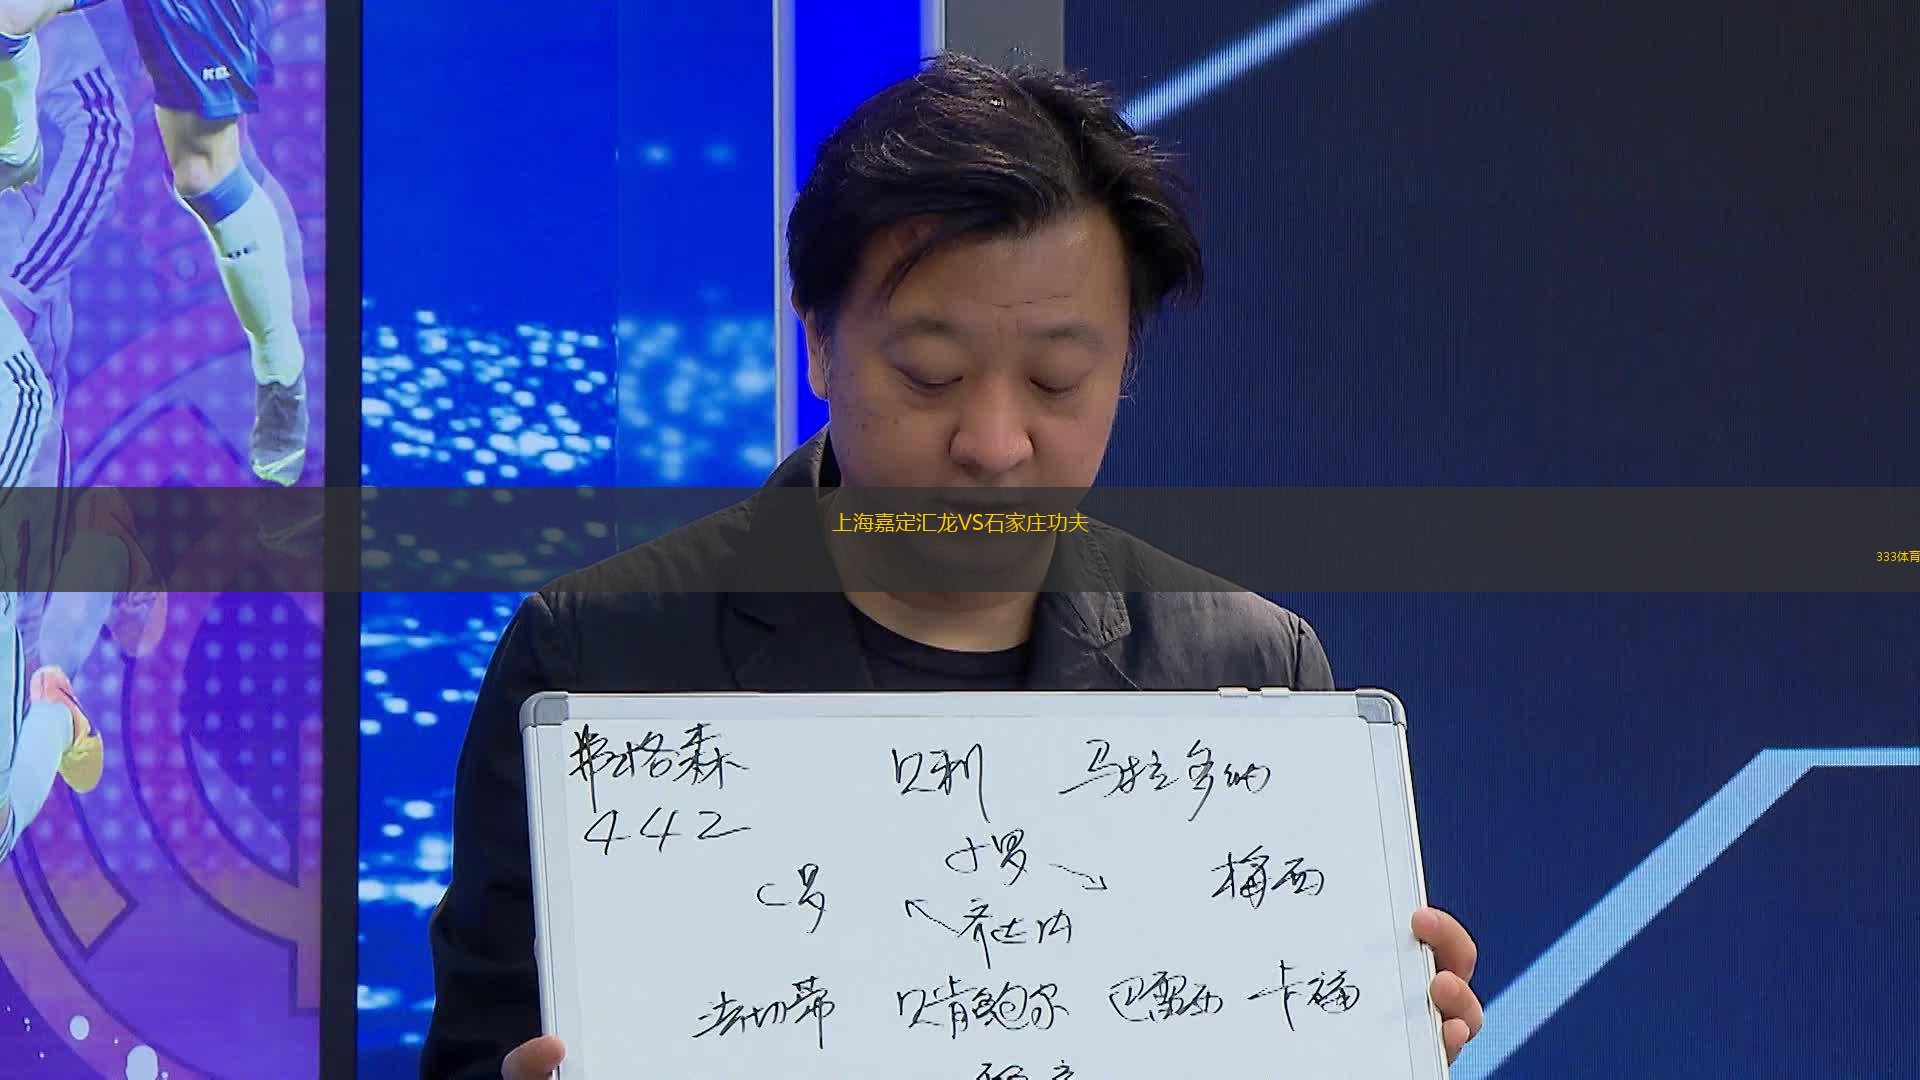 KEL
上海嘉定汇龙VS石家庄功夫
333体育
弗格森 贝利 马拉多纳
442
小罗
C罗 梅西
齐达内
法切蒂 贝肯鲍尔 巴雷西 卡福